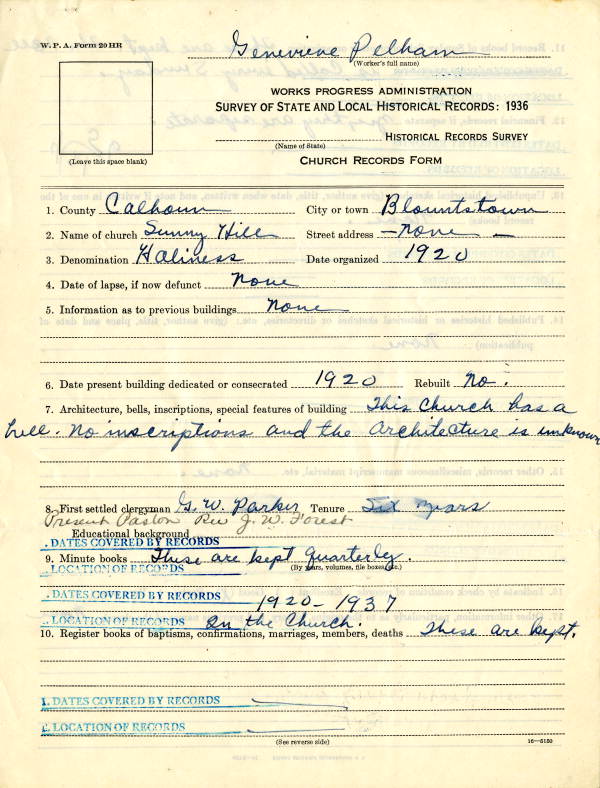 W. P. A. Form 20 HR
Genevieve Pelham
(Worker's full name)
WORKS PROGRESS ADMINISTRATION
SURVEY OF STATE AND LOCAL HISTORICAL RECORDS: 1936
HISTORICAL RECORDS SURVEY
(Name of State)
(Leave this space blank)
CHURCH RECORDS FORM
1. County Calhoun City or town Blountstown
2. Name of church Sunny Hill Street address - none -
3. Denomination Holiness Date organized 1920
4. Date of lapse, if now defunct None
5. Information as to previous buildings None
6. Date present building dedicated or consecrated 1920 Rebuilt No.
7. Architecture, bells, inscriptions, special features of building This Church has a
bell. No inscriptions and the Architecture is unknown
8. First settled clergyman G. W. Parker Tenure Six years
Present Pastor Rev J. W. Forest
Educational background
. DATES COVERED BY RECORDS
9. Minute books These are kept quarterly.
(By years, volumes, file boxes, etc.)
. LOCATION OF RECORDS
. DATES COVERED BY RECORDS 1920-1937
. LOCATION OF RECORDS In the Church.
10. Register books of baptisms, confirmations, marriages, members, deaths These are kept.
1. DATES COVERED BY RECORDS
2. LOCATION OF RECORDS
(See reverse side)
16—5150